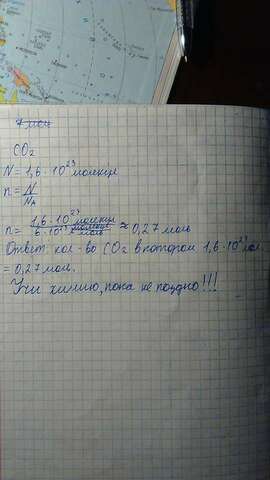 7 мол
CO₂
N = 1,6 · 10²³ молекул
n = N/Nₐ
n = 1,6 · 10²³ молекул / 6 · 10²³ 1/моль ≈ 0,27 моль
Ответ: кол-во CO₂ в котором 1,6 · 10²³ мол.
= 0,27 моль.
Учи химию, пока не поздно!!!